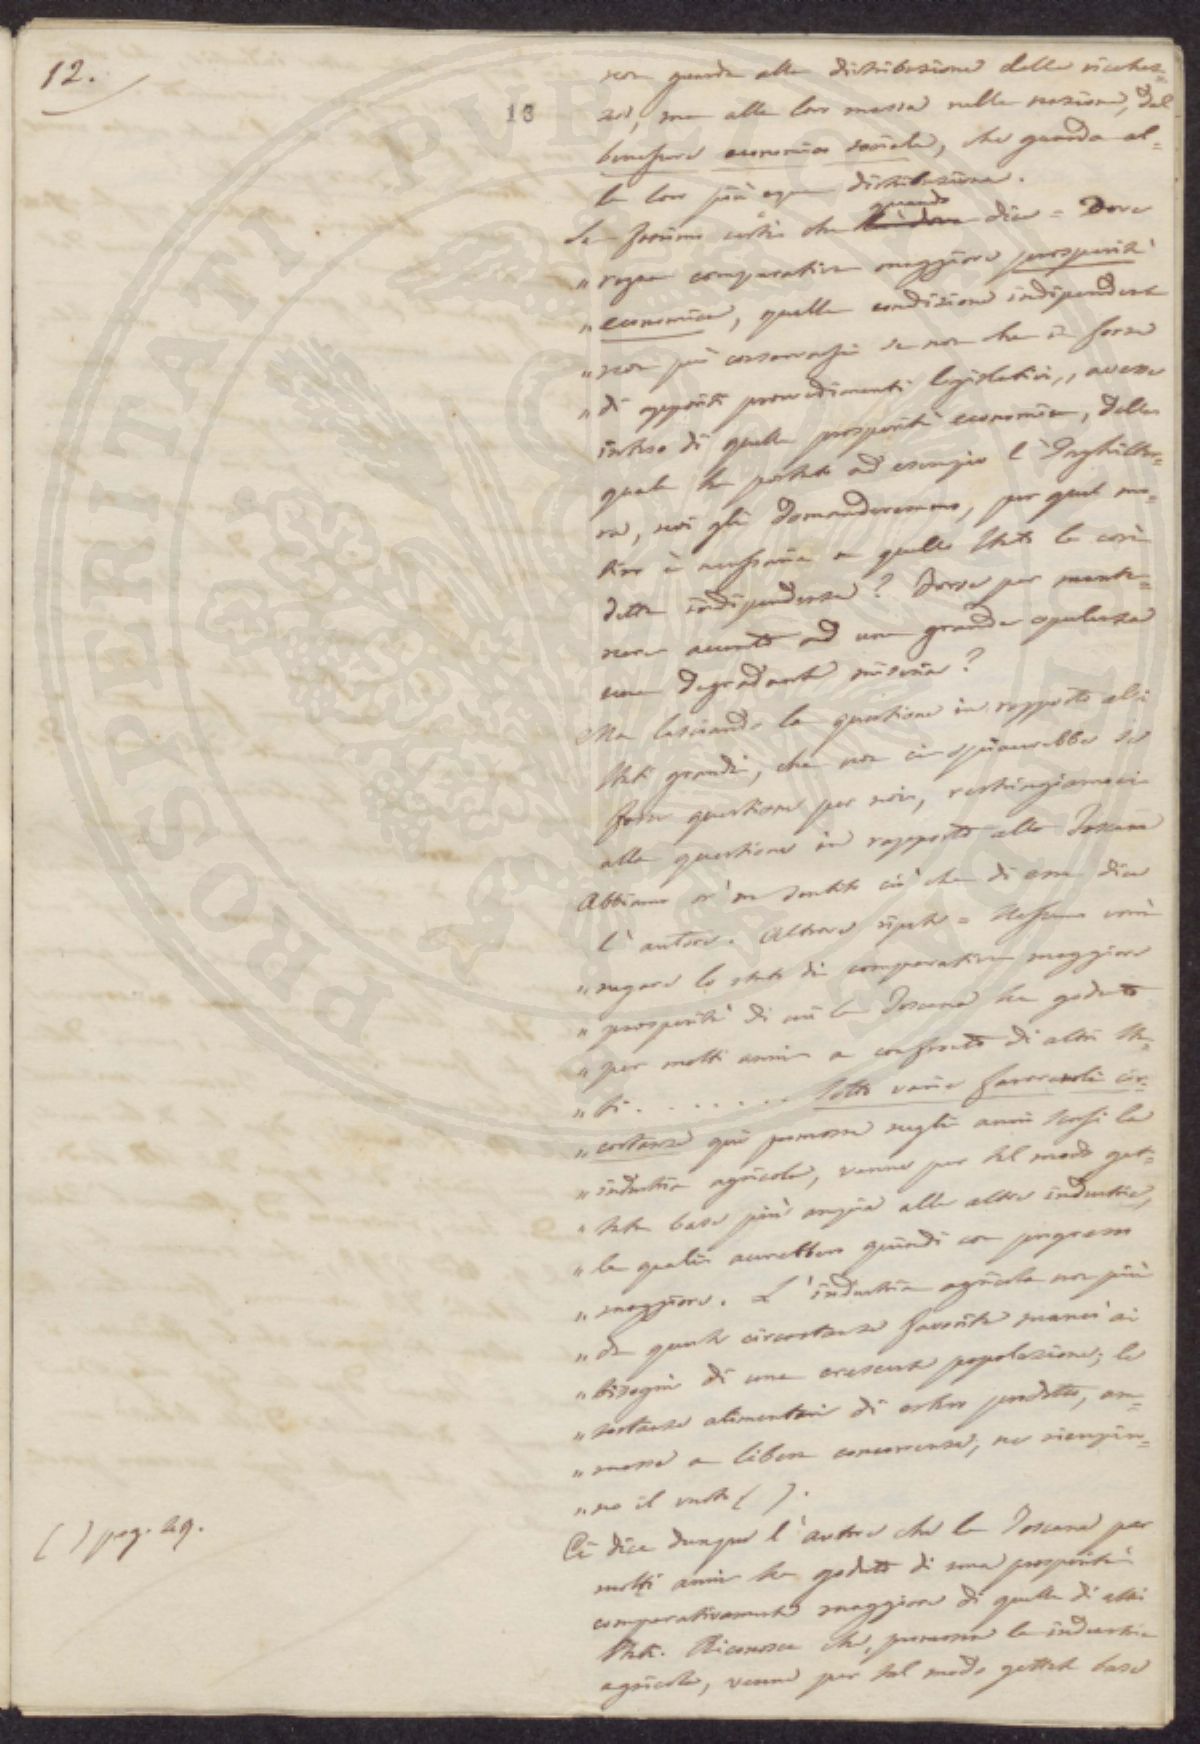 12.
13
non guarda alla distribuzione delle ricchez=
ze, ma alla loro massa nella nazione, dal
benessere economico sociale, che guarda al=
la loro più equa distribuzione.
Se fossimo certi che quando dice = Dove
" regna comparativa maggiore prosperità
" economica, quella condizione indipendente
" non può conservarsi se non che in forza
" di appositi provvedimenti legislativi,, avesse
inteso di quella prosperità economica, della
quale ha portato ad esempio l'Inghilter=
ra, noi gli domanderemmo, per qual mo=
tivo è necessaria a quello Stato la così
detta indipendenza? Forse per mante=
nere accanto ad una grande opulenza
una degradante miseria?
Ma lasciando la questione in rapporto alli
Stati grandi, che non ci
questione per noi, restringiamoci
alla questione in rapporto alla Toscana
Abbiamo sentito ciò che di essa dice
l'autore. Altrove ripete = Nessuno vorrà
" negare lo stato di comparativa maggiore
" prosperità di cui la Toscana ha goduto
" per molti anni a confronto di altri Sta=
" ti . . . . . . . . Sotto varie favorevoli cir=
" costanze più promossa negli anni scorsi la
" industria agricola, venne per tal modo get=
" tata base più ampia alle altre industrie,
" le quali avrebbero quindi con progresso
" maggiore. L'industria agricola non più
" da quelle circostanze favorita mancò ai
" bisogni di una crescente popolazione; le
" sostanze alimentari di estero prodotto, am=
" messe a libera concorrenza, ne riempiro=
" no il vuoto ( ).
( ) pag. 29.
Ci dice dunque l'autore che la Toscana per
molti anni ha goduto di una prosperità
comparativamente maggiore di quella di altri
Stati. Riconosce che, promossa la industria
agricola, venne per tal modo gettata base